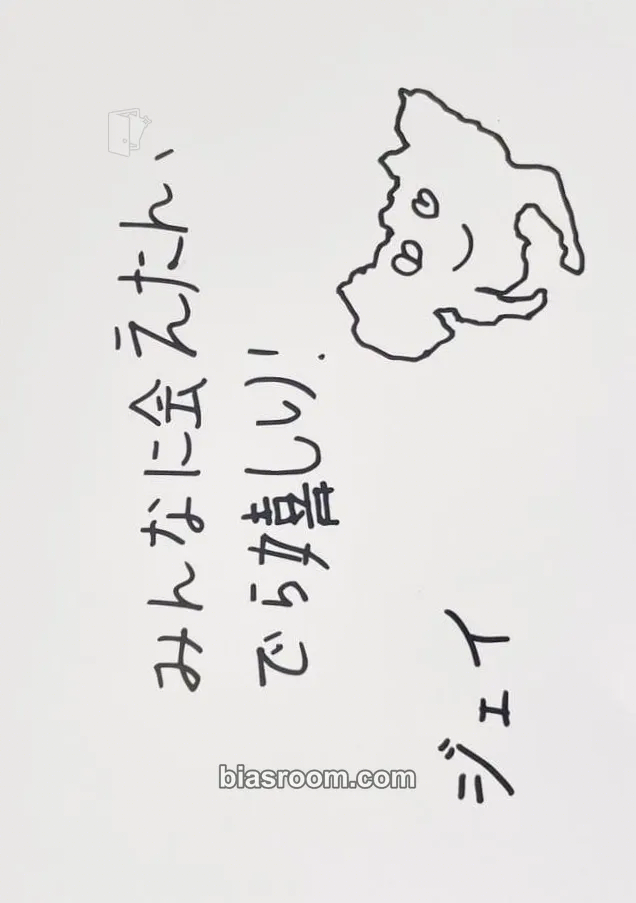 みんなに会えたん、
でら嬉しい!.
ジェイ
biasroom.com